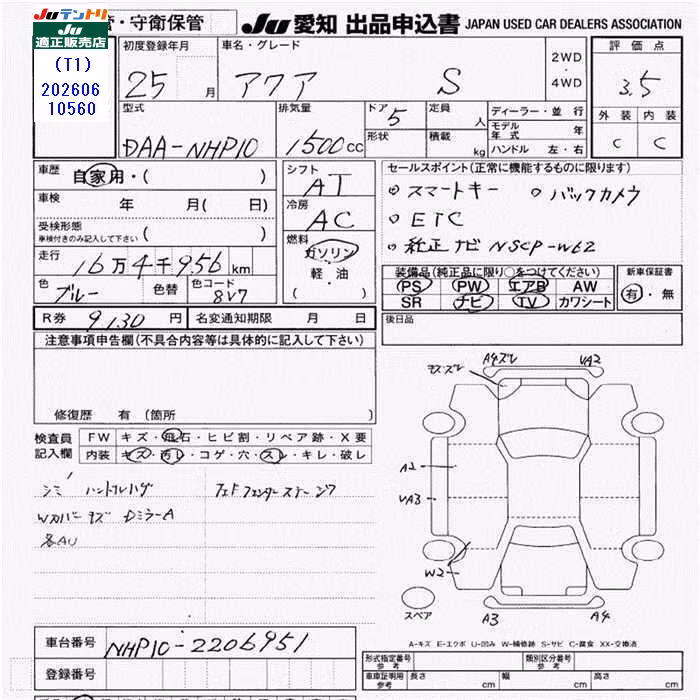 Juテントリ
Ju
適正販売店
(T1)
202606
10560
・守衛保管
Ju 愛知 出品申込書 JAPAN USED CAR DEALERS ASSOCIATION
初度登録年月 車名・グレード 2WD・4WD 評価点
25 月 アクア S 3.5
外装 内装
C C
型式 排気量 ドア 5 定員 人 ディーラー・並行
モデル年式 年
DAA-NHP10 1500 CC 形状 積載 kg ハンドル 左・右
車歴 自家用・( )
シフト AT
車検 年 月( 日)
冷房 AC
受検形態 ( )
車検付きのみ記入して下さい
燃料 ガソリン
軽・油
( )
走行 16万4千956 km
色 ブルー 色替 色コード 8V7
R券 9,130 円 名変通知期限 月 日
セールスポイント(正常に機能するものに限ります)
スマートキー バックカメラ
ETC
純正ナビ NSCP-W62
装備品(純正品に限り○をつけてください) 新車保証書
PS PW エアB AW 有・無
SR ナビ TV カワシート
後日品
注意事項申告欄(不具合内容等は具体的に記入して下さい)
修復歴 有 (箇所 )
検査員記入欄 FW キズ・飛石・ヒビ割・リペア跡・X要
内装 キズ・汚レ・コゲ・穴・スレ・キレ・破レ
シミ ハンドルハゲ
Wカバーキズ DミラーA
各AU
A4ズレ VA2
A2
VA3
W2
A3 A4
スペア
A-キズ E-エクボ U-凹み W-補修跡 S-サビ C-腐食 XX-交換済
車台番号 NHP10-2206951
登録番号
形式指定番号 参考 類別区分番号 参考
車庫証明用 参考 長さ cm 幅 cm 高さ cm